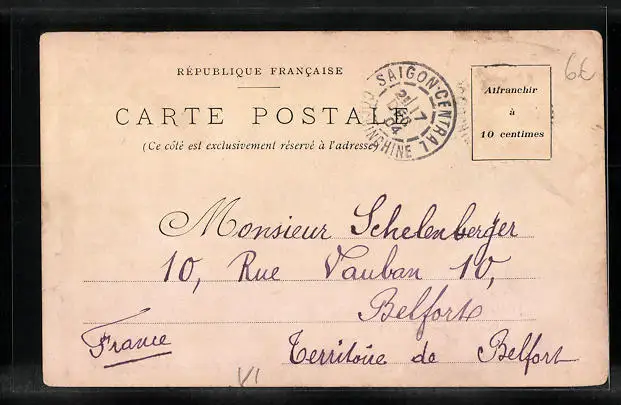 RÉPUBLIQUE FRANÇAISE
CARTE POSTALE
(Ce côté est exclusivement réservé à l'adresse)
SAIGON-CENTRAL
17
04
Affranchir
à
10 centimes
6€
Monsieur Schelenberger
10, Rue Vauban 10,
Belfort
France
Territoire de Belfort
VI